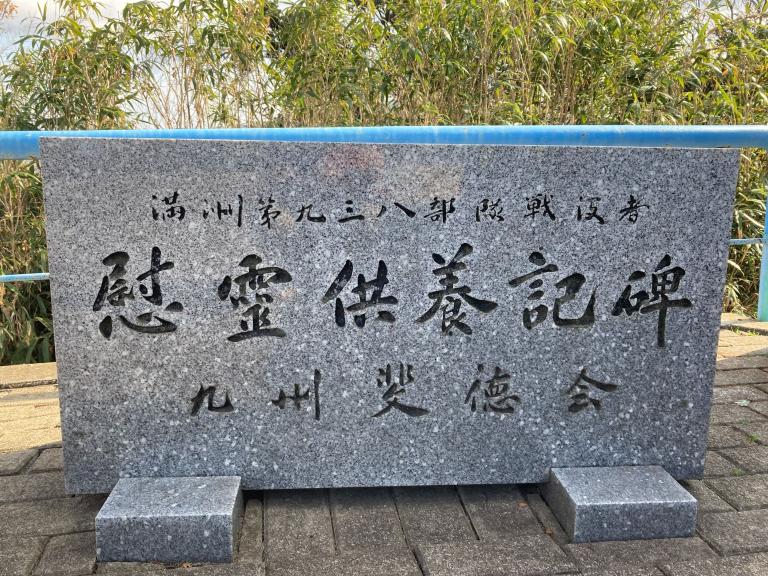 満洲第九三八部隊戦没者
慰霊供養記碑
九州斐德会